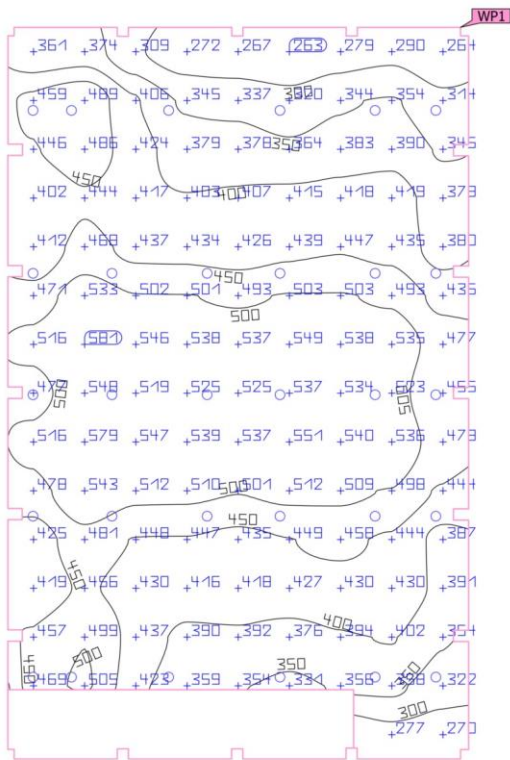 WP1
361 374 309 272 267 263 279 290 264
300
459 489 406 345 337 320 344 354 314
350
446 486 424 379 378 364 383 390 345
450
402 444 417 403 407 415 418 419 373
400
412 468 437 434 426 439 447 435 380
450
471 533 502 501 493 503 503 493 435
500
516 581 546 538 537 549 538 535 477
548 519 525 525 537 534 523 455
500 500
516 579 547 539 537 551 540 536 473
500
478 543 512 510 501 512 509 498 444
450
425 481 448 447 435 449 456 444 387
450
419 456 430 416 418 427 430 430 391
400
457 499 437 390 392 376 384 402 354
450 500 350 350
469 505 423 359 354 331 356 322
300
277 270